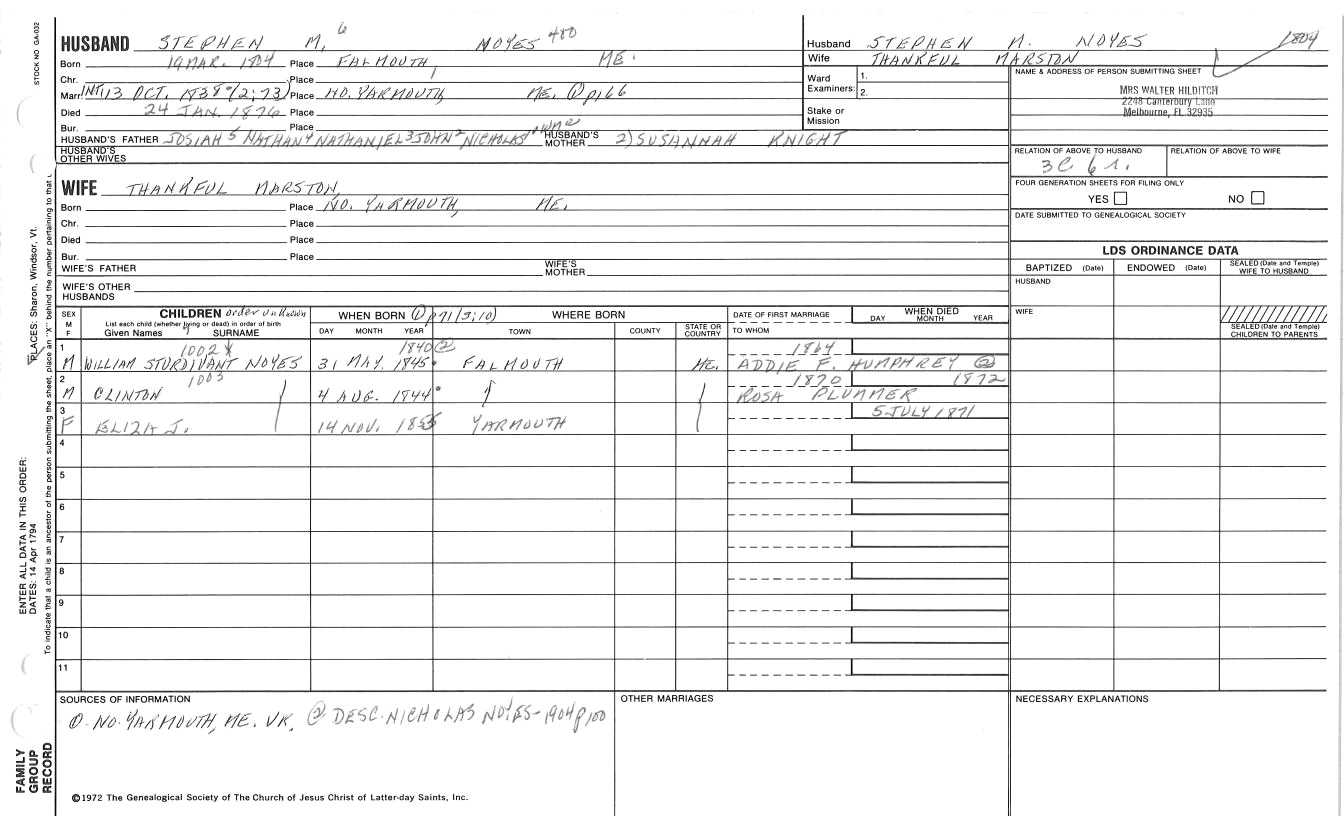 STOCK NO GA-032
HUSBAND STEPHEN M. 6 NOYES 480
Born 19 MAR. 1804 Place FALMOUTH, ME.
Chr. Place
Marr. INT. 13 OCT. 1838 (2:73) Place NO. YARMOUTH, ME. ① p166
Died 24 JAN. 1876 Place
Bur. Place
HUSBAND'S FATHER JOSIAH 5 NATHAN 4 NATHANIEL 3 JOHN 2 NICHOLAS 1 HUSBAND'S MOTHER 2) SUSANNAH KNIGHT
HUSBAND'S OTHER WIVES
WIFE THANKFUL MARSTON,
Born Place NO. YARMOUTH, ME.
Chr. Place
Died Place
Bur. Place
WIFE'S FATHER WIFE'S MOTHER
WIFE'S OTHER HUSBANDS
Husband STEPHEN M. NOYES 1804
Wife THANKFUL MARSTON
Ward Examiners: 1. 2.
Stake or Mission
NAME & ADDRESS OF PERSON SUBMITTING SHEET
MRS WALTER HILDITCH
2248 Canterbury Lane
Melbourne, FL 32935
RELATION OF ABOVE TO HUSBAND RELATION OF ABOVE TO WIFE
3C 6 r.
FOUR GENERATION SHEETS FOR FILING ONLY
YES NO
DATE SUBMITTED TO GENEALOGICAL SOCIETY
LDS ORDINANCE DATA
BAPTIZED (Date) ENDOWED (Date) SEALED (Date and Temple) WIFE TO HUSBAND
HUSBAND
WIFE
SEALED (Date and Temple) CHILDREN TO PARENTS
SEX M F CHILDREN order unknown WHEN BORN ① p71 (3:10) WHERE BORN DATE OF FIRST MARRIAGE WHEN DIED
List each child (whether living or dead) in order of birth
Given Names SURNAME DAY MONTH YEAR TOWN COUNTY STATE OR COUNTRY TO WHOM DAY MONTH YEAR
1 1002 X 1840 ② 1864
M WILLIAM STURDIVANT NOYES 31 MAY. 1845 FALMOUTH ME. ADDIE F. HUMPHREY ②
2 1003 1870 1872
M CLINTON 4 AUG. 1844 ROSA PLUMMER
3 5 JULY 1871
F ELIZA J. 14 NOV. YARMOUTH
4
5
6
7
8
9
10
11
SOURCES OF INFORMATION OTHER MARRIAGES NECESSARY EXPLANATIONS
①. NO. YARMOUTH, ME. VR. ② DESC. NICHOLAS NOYES-1904 p100
©1972 The Genealogical Society of The Church of Jesus Christ of Latter-day Saints, Inc.
FAMILY GROUP RECORD
ENTER ALL DATA IN THIS ORDER:
DATES: 14 Apr 1794
PLACES: Sharon, Windsor, Vt.
To indicate that a child is an ancestor of the person submitting the sheet, place an "X" behind the number pertaining to that